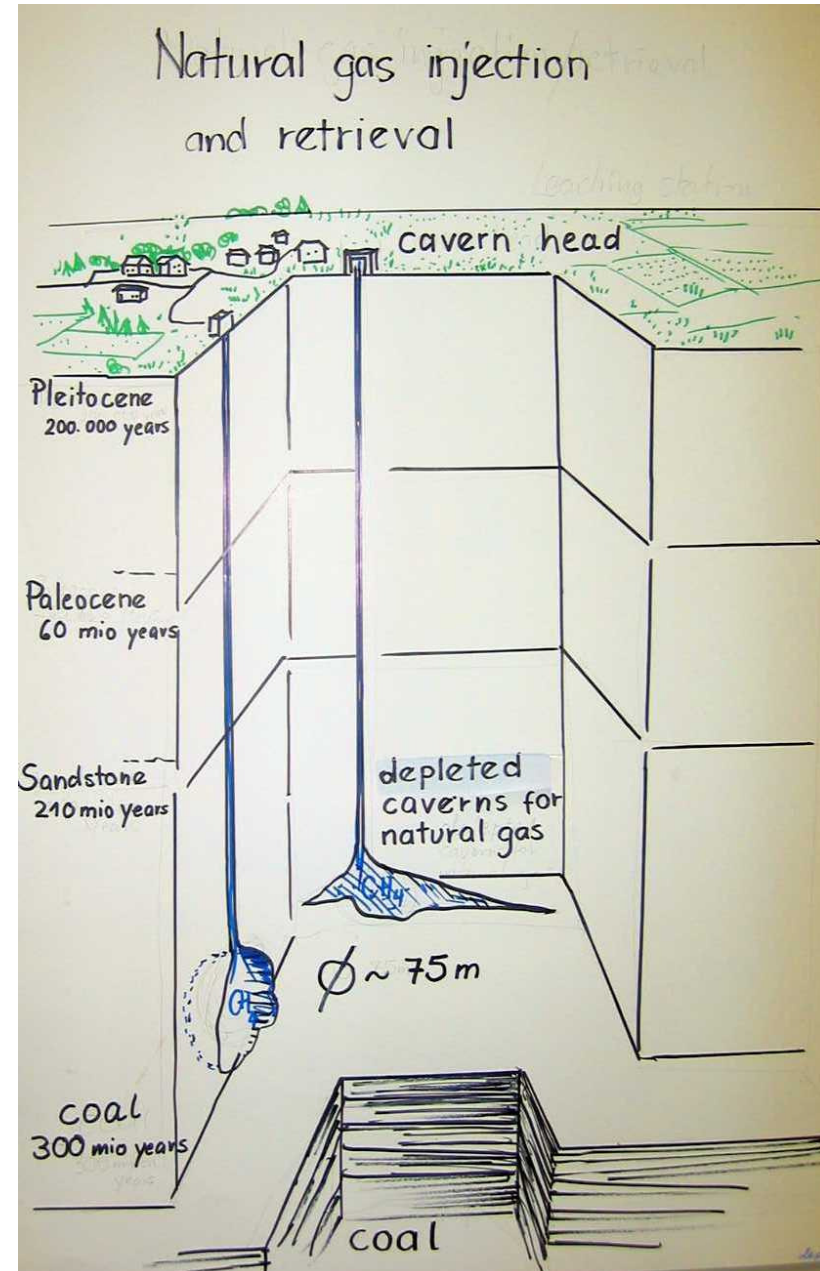 Natural gas injection
and retrieval
Leaching station
cavern head
Pleitocene
200.000 years
Paleocene
60 mio years
Sandstone
210 mio years
depleted
caverns for
natural gas
CH4
CH4
Ø ~ 75 m
coal
300 mio years
coal